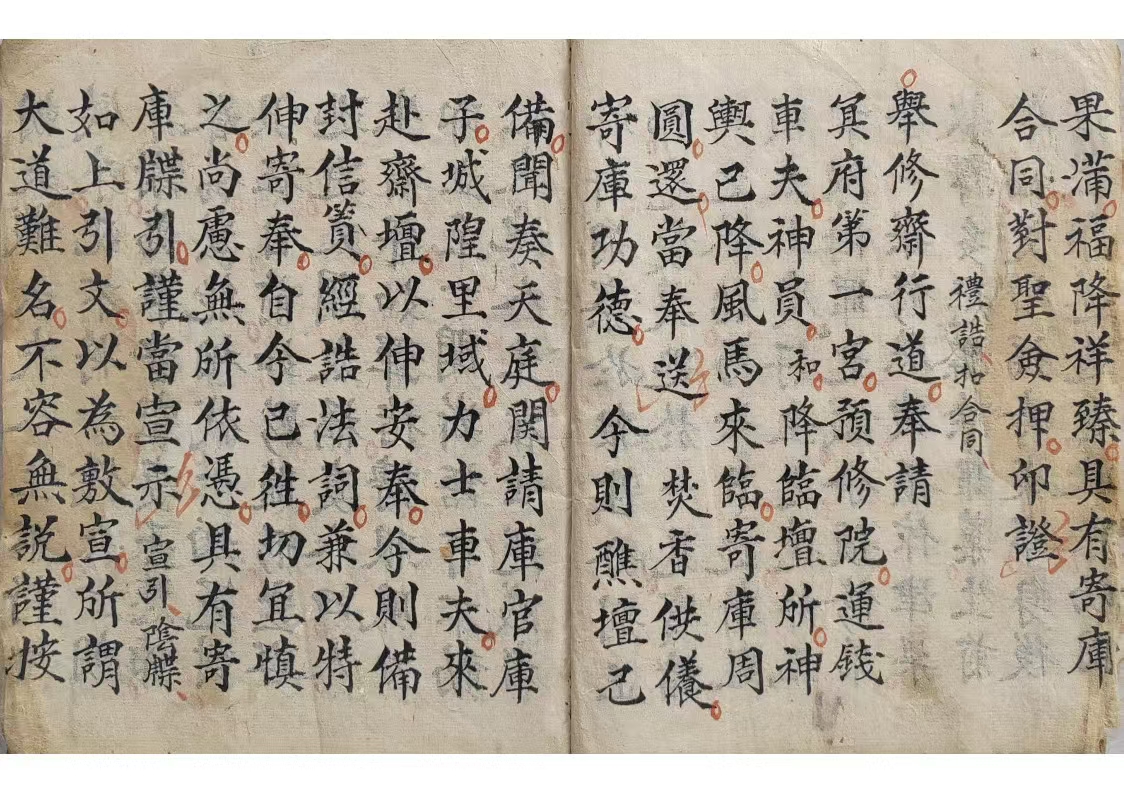 果滿福降祥臻具有寄庫
合同對聖僉押印證
禮誥扣合同
舉修齋行道奉請
冥府第一宮預修院運錢
車夫神員和降臨壇所神
輿已降風馬來臨寄庫周
圓還當奉送 焚香供儀
寄庫功德 今則醮壇已
備聞奏天庭関請庫官庫
子城隍里域力士車夫來
赴齋壇以伸安奉今則備
封信篢經誥法詞兼以特
伸寄奉自今已徃切宜慎
之尚慮無所依憑具有寄
庫牒引謹當宣示宣引陰牒
如上引文以為敷宣所謂
大道難名不容無説謹按